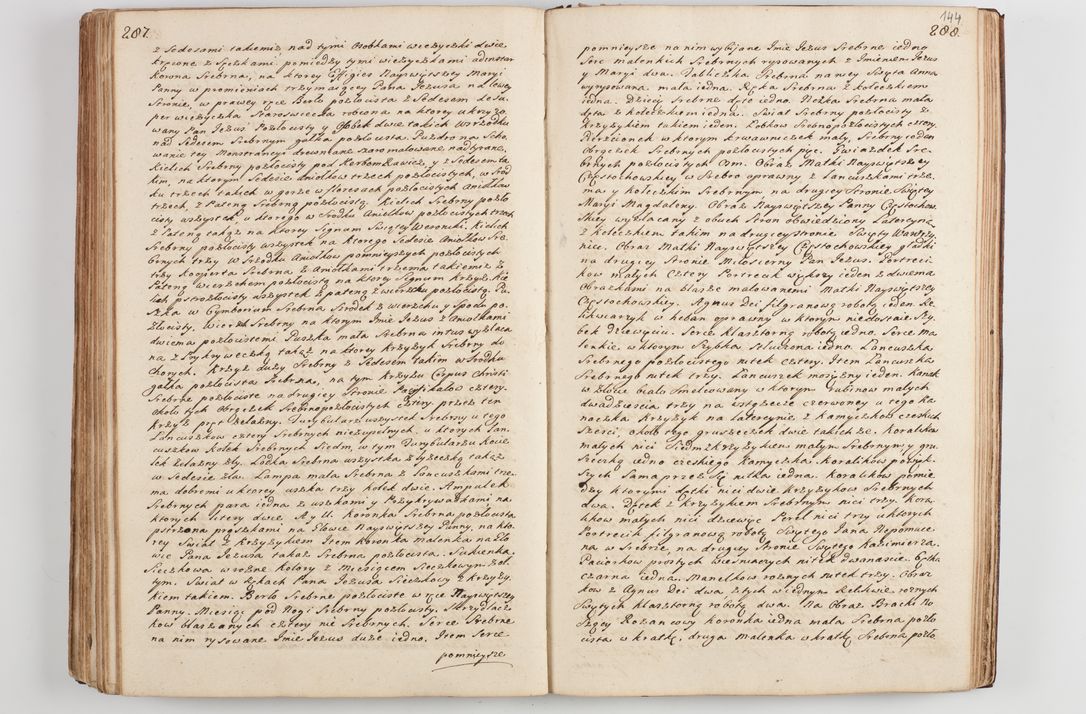 287.
z Sedesami takiemiż nad tymi Osobkami wieżyczki dwie
kręcone z Spczkami pomiędzy tymi wieżyczkami
Korona Srebrna, na ktorey Effigies Nayswiętszey Maryi
Panny w promieniach trzymaiącey Pana Jezusa na Lewey
Stronie, w prawey ręce Berło pozłocista z Sedesem
per wieżyczka Staroswiecka robiona na ktorey ukrzyżo
wany Pan Jezus Pozłocisty
nad Sedesem Srebrnym gałka pozłocista. Puzdrona Scho
wanie tey Monstrancyi drewniane szaro malowane
Kielich Srebrny pozłocisty pod Herbem Kawicz, y z Sedesem ta
kim, na ktorym Sedesie Aniołkow trzech pozłocistych, w Srod
ku trzech takich w gorze w floresach pozłocistych Aniołkow
trzech, z Pateną Srebrną pozłocistą. Kielich Srebrny pozło
cisty wszystek, u ktorego w Srodku Aniołkow pozłocistych trzech
z Pateną takąż na ktorey Signum Swiętey Weroniki. Kielich
Srebrny pozłocisty wszystek na ktorego Sedesie Aniołkow Sre
brnych trzy w Srodku Aniołkow pomnieyszych pozłocistych
trzy Kopierta Srebrna z Aniołkami trzema takiemiż z
Pateną wierzchem pozłocistą na ktorey Signum Krzyża Kie
lich pstrozłocisty wszystek z pateną z wierzchu pozłocistą. Pu
szka w Cymborium Srebrna Srodek z wierzchu y Spodu po
złocisty. Wierzch Srebrny na ktorym Imie Jezus z Aniołkami
dwiema pozłocistemi Puszka mała Srebrna intus wyzłaca
na z Przykryweczką takąż na ktorey Krzyżyk Srebrny do
Chorych. Krzyż duży Srebrny z Sedesem takim w Srodku
gałka pozłocista Srebrna, na tym Krzyżu Corpus Christi
Srebrne pozłociste na drugiey Stronie cztery.
około tych Obrączek Srebrnopozłocistych cztery przez ten
Krzyż pręt żelazny. Turybularz wszystek Srebrny u tego
Łancuszkow cztery Srebrnych niezupełnych, u ktorych Łan
cuszkow Kolek Srebrnych Siedm, w tym Turybularzu Kocie
łek żelazny zły. Łodka Srebrna wszystka z łyżeczką takąż
w Sedesie zła. Lampa mała Srebrna z Łancuszkami trze
ma dobremi u ktorey uszka trzy kolek dwie. Ampułek
Srebrnych para iedna z uszkami y Przykrywadkami na
ktorych litery dwie A y U. Koronka Srebrna pozłocista
pstrzona prążkami na Głowie Nayswiętszey Panny, na kto
rey Swiat z Krzyżykiem Item koronka maleńka na Gło
wie Pana Jezusa takaż Srebrna pozłocista. Sukienka
Sieczkowa w rożne kolory z Miesiącem Sieczkowym żoł
tym. Swiat w Rękach Pana Jezusa Sieczkowy z Krzyży
kiem takiem. Berło Srebrne pozłociste w ręce Nayswiętszey
Panny. Miesiąc pod Nogi Srebrny pozłocisty. Skrzydlacz
kow blaszanych cztery nie Srebrnych. Serce Srebrne
na nim rysowane Imie Jezus duże iedno. Item Serce
pomnieysze
144
288.
pomnieysze na nim wybijane Imie Jezus Srebrne iedno
Serc malenkich Srebrnych rysowanych z Imieniem Jezus
y Maryi dwa. Tabliczka Srebrna na niey Swięta Anna
wyrysowana mała iedna. Rączka Srebrna z kołeczkiem
iedna. Dziecię Srebrne dęte iedno. Nożka Srebrna mała
dęta z kołeczkiem iedna. Swiat Srebrny pozłocisty z
Krzyżykiem takiem ieden. Łobkow Srebnopozłocistych cztery
Pierzcionek w ktorym krwawniczek mały, Srebrny ieden
Obrączek Srebrnych pozłocistych pięc. Gwiazdek Sre
brnych pozłocistych osm. Obraz Matki Nayswiętszey
Częstochowskiey w Srebro oprawny z Łancuszkami trze
ma y kołeczkiem Srebrnym na drugiey Stronie Swiętey
Maryi Magdaleny. Obraz Nayswiętszey Panny Częstochow
skiey wyzłacany z obuch Stron obwiedziony Latercyną
z kołeczkiem takim na drugiey Stronie Swięty Wawrzy
niec. Obraz Matki Nayswiętszey Częstochowskiey gładki
na drugiey Stronie Miłosierny Pan Jezus. Portreci
kow małych Cztery Portrecik większy ieden z dwiema
Obrazkami na blasze malowanemi Matki Nayswiętszey
Częstochowskiey. Agnus Dei filgranową robotą ieden Re
likwiarzyk w heban oprawny w ktorym niedostaie Szy
bek dziewięciu. Serce klasztorną robotą iedno. Serce ma
lenkie w ktorym Szybka stłuczona iedna Łancuszka
Srebrnego pozłocistego nitek cztery. Item Łancuszka
Srebrnego nitek trzy. Łancuszek mosiężny ieden. Kanak
w złoto biało Smelcowany w ktorym rubinow małych
dwadziescia trzy na wstążecze czerwoney u tego ka
naczka Krzyżyk na Latercynie z kamyczkow czeskich
Szesci, około tego gruszeczek dwie takich że. Koralikow
małych nici Siedm z krzyżykiem małym Srebrnym y gru
szeczką iedno czeskiego kamyczka. Koralikow
Sama przez Się nitka iedna. Koralikow pomię
dzy ktorymi nici dwie Krzyżykow Srebrnych
dwa. Dętek z Krzyżykiem Srebrnym nici trzy. Kora
likow małych nici dziewięc Pereł nici trzy u ktorych
Portrecik filgranową robotą Swiętego Jana Nepomuce
na w Srebrze, na drugiey Stronie Swiętego Kazimierza.
Paciorkow prostych wiesniaczych nitek dwanascie.
czarna iedna. Manelkow rożnych nitek trzy. Obraz
kow z Agnus Dei dwa z tych w iednym Relikwie rożnych
Swiętych klasztorną robotą dwa. Na Obraz Bracki No
szący Rożancowy koronka iedna mała Srebrna pozło
cista w kratkę, druga malenka w kratkę Srebrna pozło